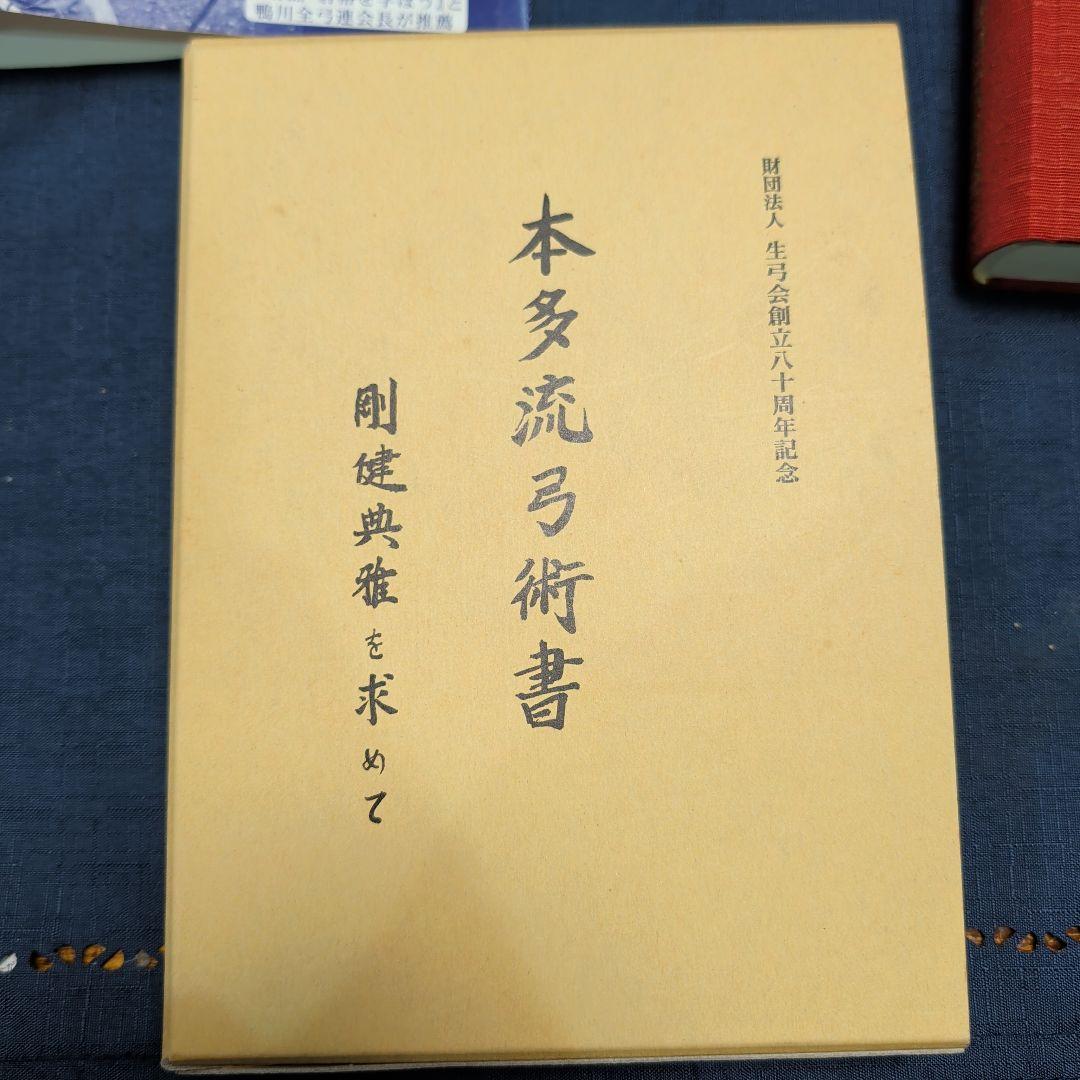 鴨川全弓連会長が推薦
財団法人 生弓会創立八十周年記念
本多流弓術書
剛健典雅を求めて